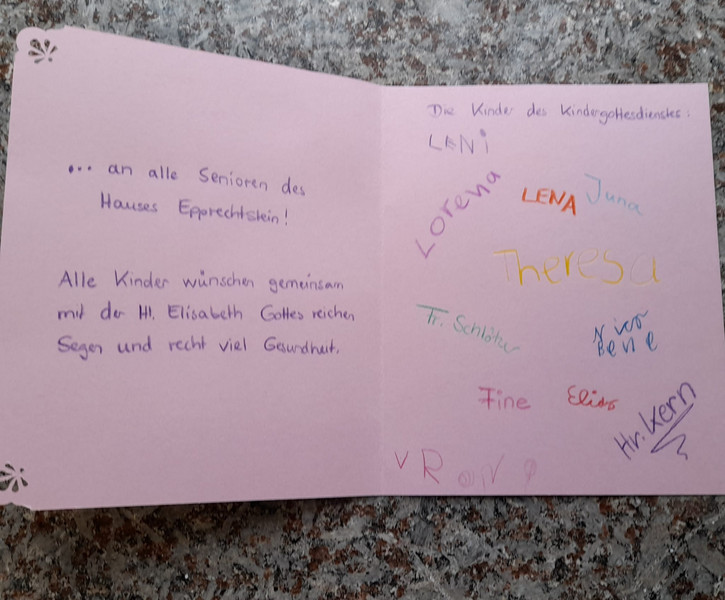 ... an alle Senioren des
Hauses Epprechtstein!
Alle Kinder wünschen gemeinsam
mit der Hl. Elisabeth Gottes reichen
Segen und recht viel Gesundheit.
Die Kinder des Kindergottesdienstes:
LENi
Lorena
LENA
Juna
Theresa
Fr. Schlötzer
Nico
Bene
Fine
Elisa
Hr. Kern